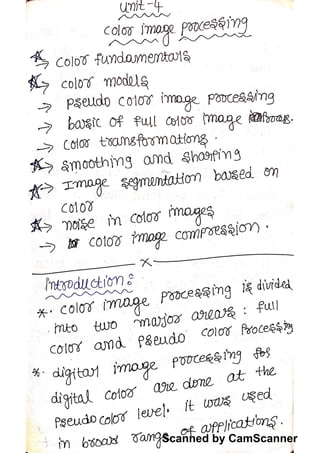 unit-4
color image processing
→ color fundamentals
→ color models
→ pseudo color image processing
→ basic of full color image process.
→ color transformations.
→ smoothing and sharping
→ Image segmentation based on
color
→ noise in color images
→ color image compression.
x
Introduction:
*. color image processing is divided
into two major areas: full
color and pseudo color processing
*. digital image processing for
digital color are done at the
pseudo color level. it was used
in broad range of applications.
Scanned by CamScanner